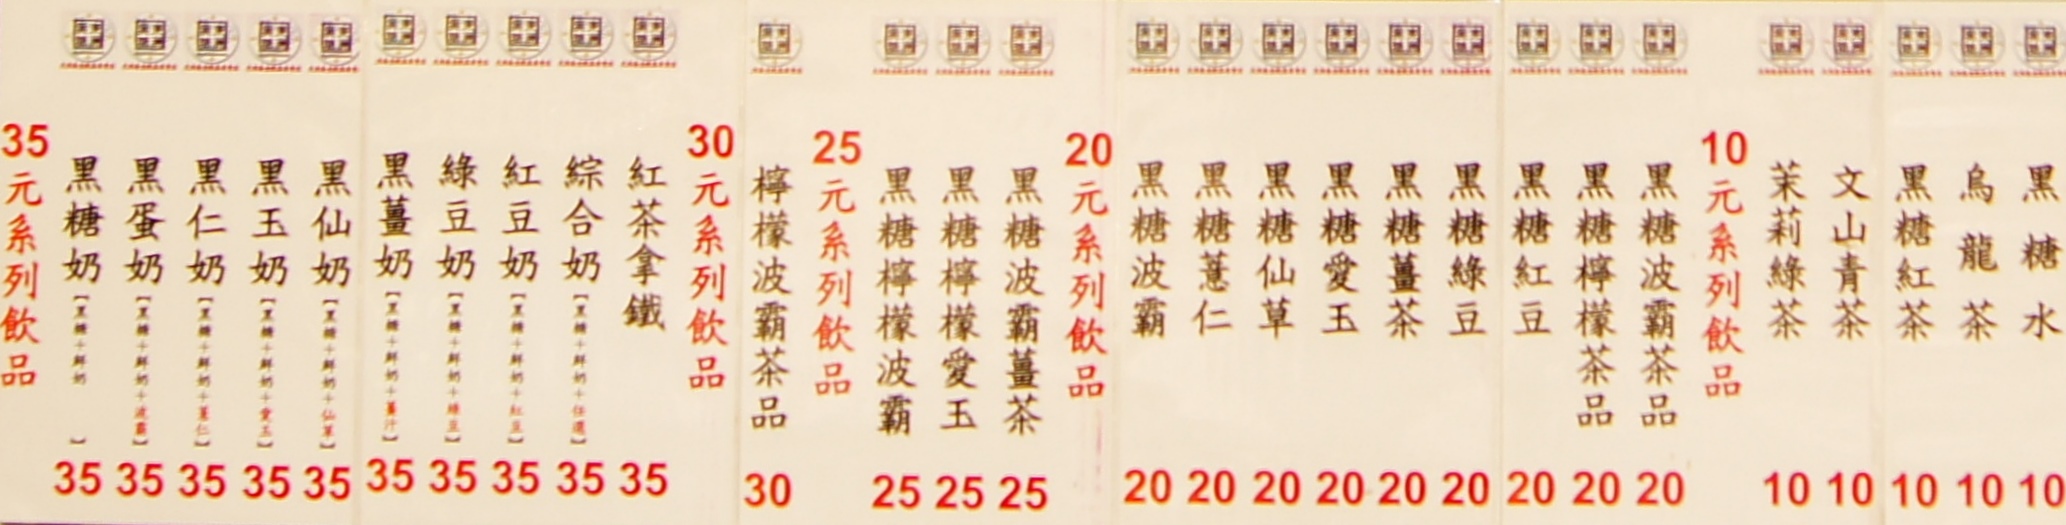 35元系列飲品
黑糖奶【黑糖+鮮奶】35
黑蛋奶【黑糖+鮮奶+波霸】35
黑仁奶【黑糖+鮮奶+薏仁】35
黑玉奶【黑糖+鮮奶+愛玉】35
黑仙奶【黑糖+鮮奶+仙草】35
黑薑奶【黑糖+鮮奶+薑汁】35
綠豆奶【黑糖+鮮奶+綠豆】35
紅豆奶【黑糖+鮮奶+紅豆】35
綜合奶【黑糖+鮮奶+任選】35
紅茶拿鐵35
30元系列飲品
檸檬波霸茶品30
25元系列飲品
黑糖檸檬波霸25
黑糖檸檬愛玉25
黑糖波霸薑茶25
20元系列飲品
黑糖波霸20
黑糖薏仁20
黑糖仙草20
黑糖愛玉20
黑糖薑茶20
黑糖綠豆20
黑糖紅豆20
黑糖檸檬茶品20
黑糖波霸茶品20
10元系列飲品
茉莉綠茶10
文山青茶10
黑糖紅茶10
烏龍茶10
黑糖水10